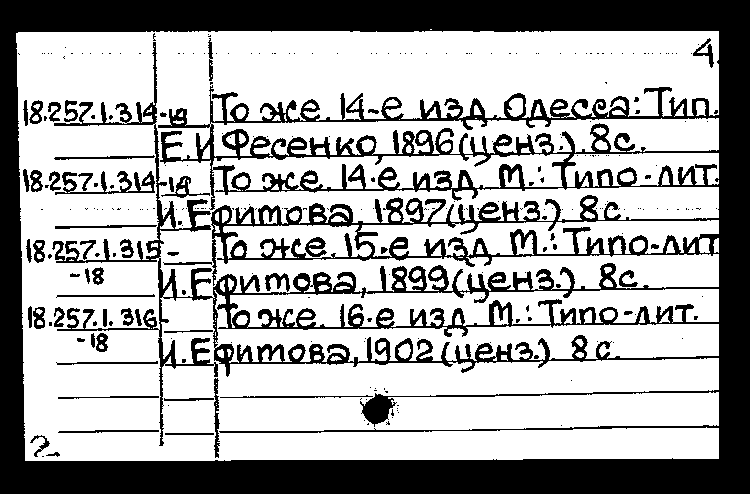 4.
18.257.1.314-18 То же. 14-е изд. Одесса: Тип.
Е.И. Фесенко, 1896 (ценз.). 8 с.
18.257.1.314-18 То же. 14-е изд. М.: Типо-лит.
И. Ефитова, 1897 (ценз.). 8 с.
18.257.1.315 - То же. 15-е изд. М.: Типо-лит
-18 И. Ефитова, 1899 (ценз.). 8 с.
18.257.1.316- То же. 16-е изд. М.: Типо-лит.
-18 И. Ефитова, 1902 (ценз.) 8 с.
2.